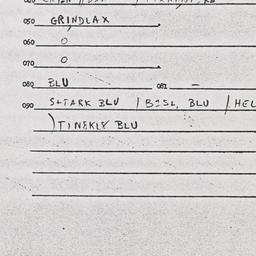 050 GRINDLAX
060 0
070 0
080 BLU 081 –
090 STARK BLU / BISL. BLU / HEL
) TINEKLY BLU